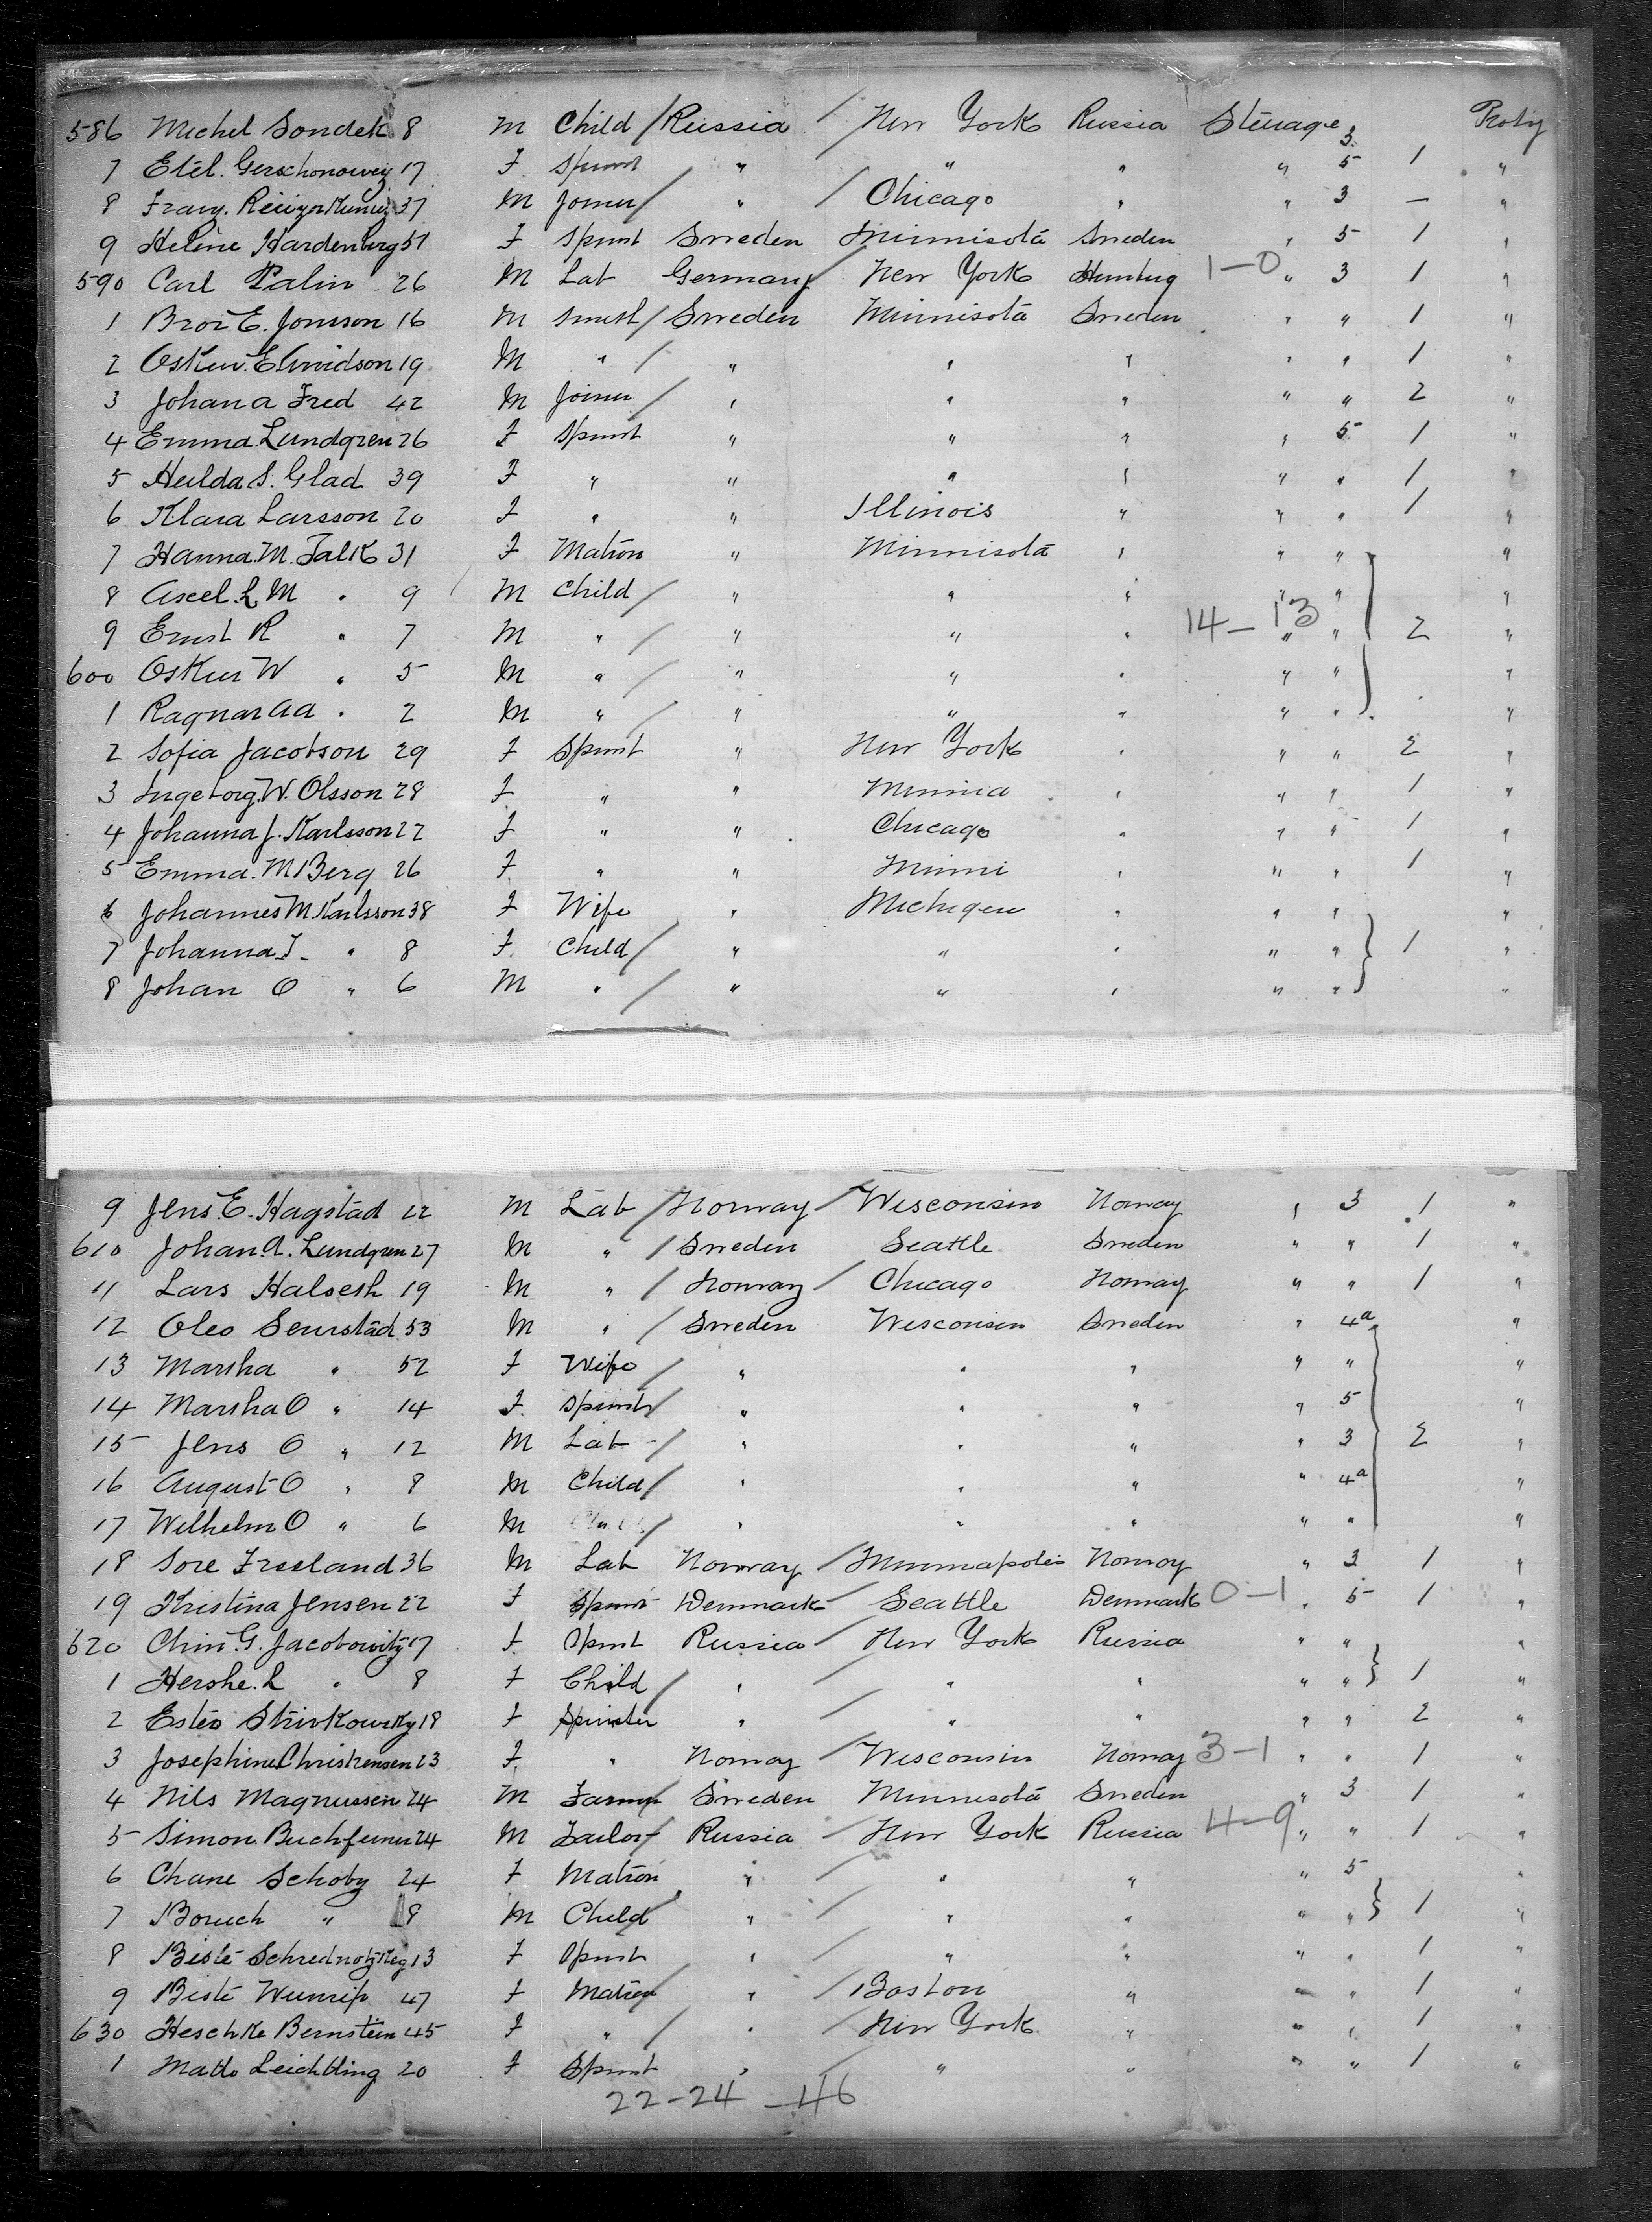 586 Michel Sondek 8 M Child / Russia / New York Russia Steerage 3 Protg
7 Etel. Gerschonowicz 17 F Spinst " " " " 5 1 "
8 Franz. 37 M Joiner / " / Chicago " " 3 — "
9 Helene Hardenberg 51 F Spinst Sweden Minnisota Sweden " 5 1 "
590 Carl Palin 26 M Lab Germany / New York Hamburg 1-0 " 3 1 "
1 Bror E. Jonsson 16 M Smith / Sweden Minnisota Sweden " " 1 "
2 Oskar. E Arvidson 19 M " / " " " " " 1 "
3 Johan A Fred 42 M Joiner / " " " " " 2 "
4 Emma. Lundgren 26 F Spinst " " " " 5 1 "
5 Hulda S. Glad 39 F " " " " " " 1 "
6 Klara Larsson 20 F " " Illinois " " " 1 "
7 Hanna. M. Falk 31 F Matron " Minnisota " " " "
8 Axel. L M " 9 M Child / " " " " " "
9 Ernst R " 7 M " / " " " 14-13 " " 2 "
600 Oskar W " 5 M " / " " " " " "
1 Ragnar Aa " 2 M " / " " " " " "
2 Sofia Jacobson 29 F Spinst " New York " " " 2 "
3 Ingeborg. W. Olsson 28 F " " Minnia " " " 1 "
4 Johanna J. Karlsson 22 F " " Chicago " " " 1 "
5 Emma. M Berg 26 F " " Minni " " " 1 "
6 Johannes M. Karlsson 38 F Wife " Michigan " " " "
7 Johanna. I. " 8 F Child / " " " " " 1 "
8 Johan O " 6 M " / " " " " " "
9 Jens. E. Hagstad 22 M Lab / Norway / Wisconsin Norway " 3 1 "
610 Johan. A. Lundgren 27 M " / Sweden Seattle Sweden " " 1 "
11 Lars Halseth 19 M " / Norway / Chicago Norway " " 1 "
12 Oleo Senrstad 53 M " / Sweden Wisconsin Sweden " 4a "
13 Marsha " 52 F Wife / " " " " " "
14 Marsha O " 14 F Spinst / " " " " 5 "
15 Jens O " 12 M Lab / " " " " 3 2 "
16 August O " 8 M Child / " " " " 4a "
17 Wilhelm O " 6 M Child / " " " " " "
18 Sore Freeland 36 M Lab Norway / Minnapolis Norway " 3 1 "
19 Kristina Jensen 22 F Spinst Denmark / Seattle Denmark 0-1 " 5 1 "
620 G. Jacobowitz 17 F Spinst Russia / New York Russia " " "
1 Hershe. L " 8 F Child / " / " " " " 1 "
2 18 F Spinster " / " " " " 2 "
3 Josephine Christensen 23 F " Norway / Wisconsin Norway 3-1 " " 1 "
4 Nils Magnussen 24 M Farmer Sweden Minnesota Sweden " 3 1 "
5 Simon 24 M Tailor / Russia / New York Russia 4-9 " " 1 "
6 Chane Schoby 24 F Matron " / " " " 5 "
7 Boruch " 8 M Child / " / " " " " 1 "
8 Beste 13 F Spinst " / " " " " 1 "
9 Beste 47 F Matron / " / Boston " " " 1 "
630 Heschke Bernstein 45 F " / " / New York " " " 1 "
1 Matto Leichtling 20 F Spinst " / " " " " 1 "
22-24 — 46